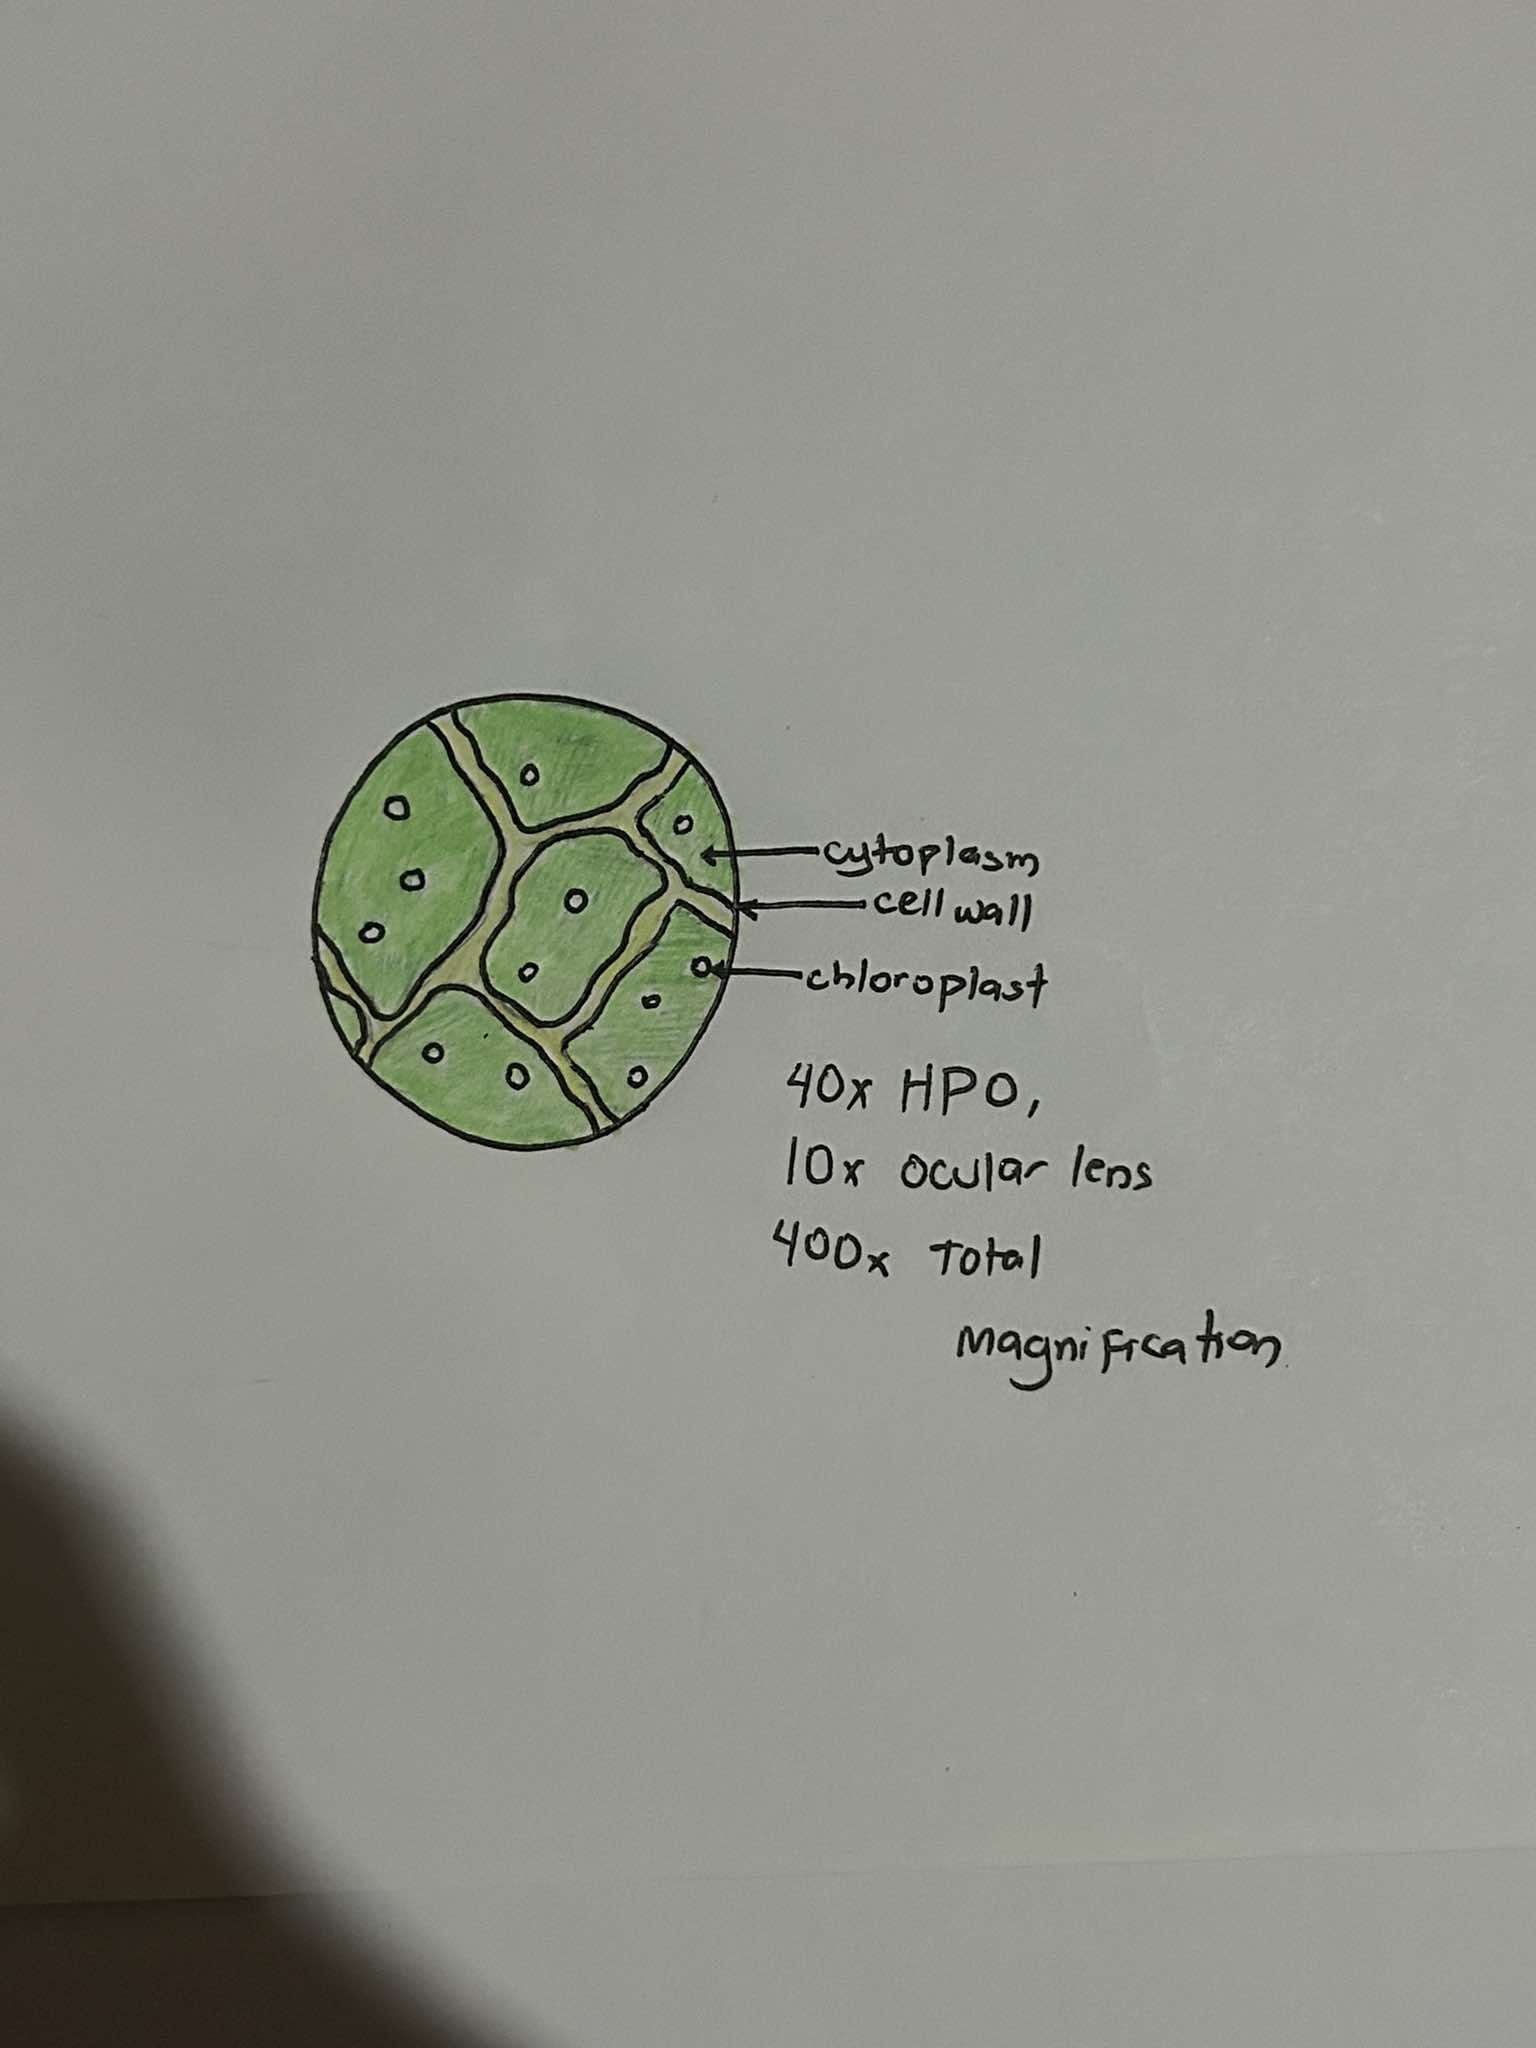 cytoplasm
cell wall
chloroplast
40x HPO,
10x ocular lens
400x Total
magnification